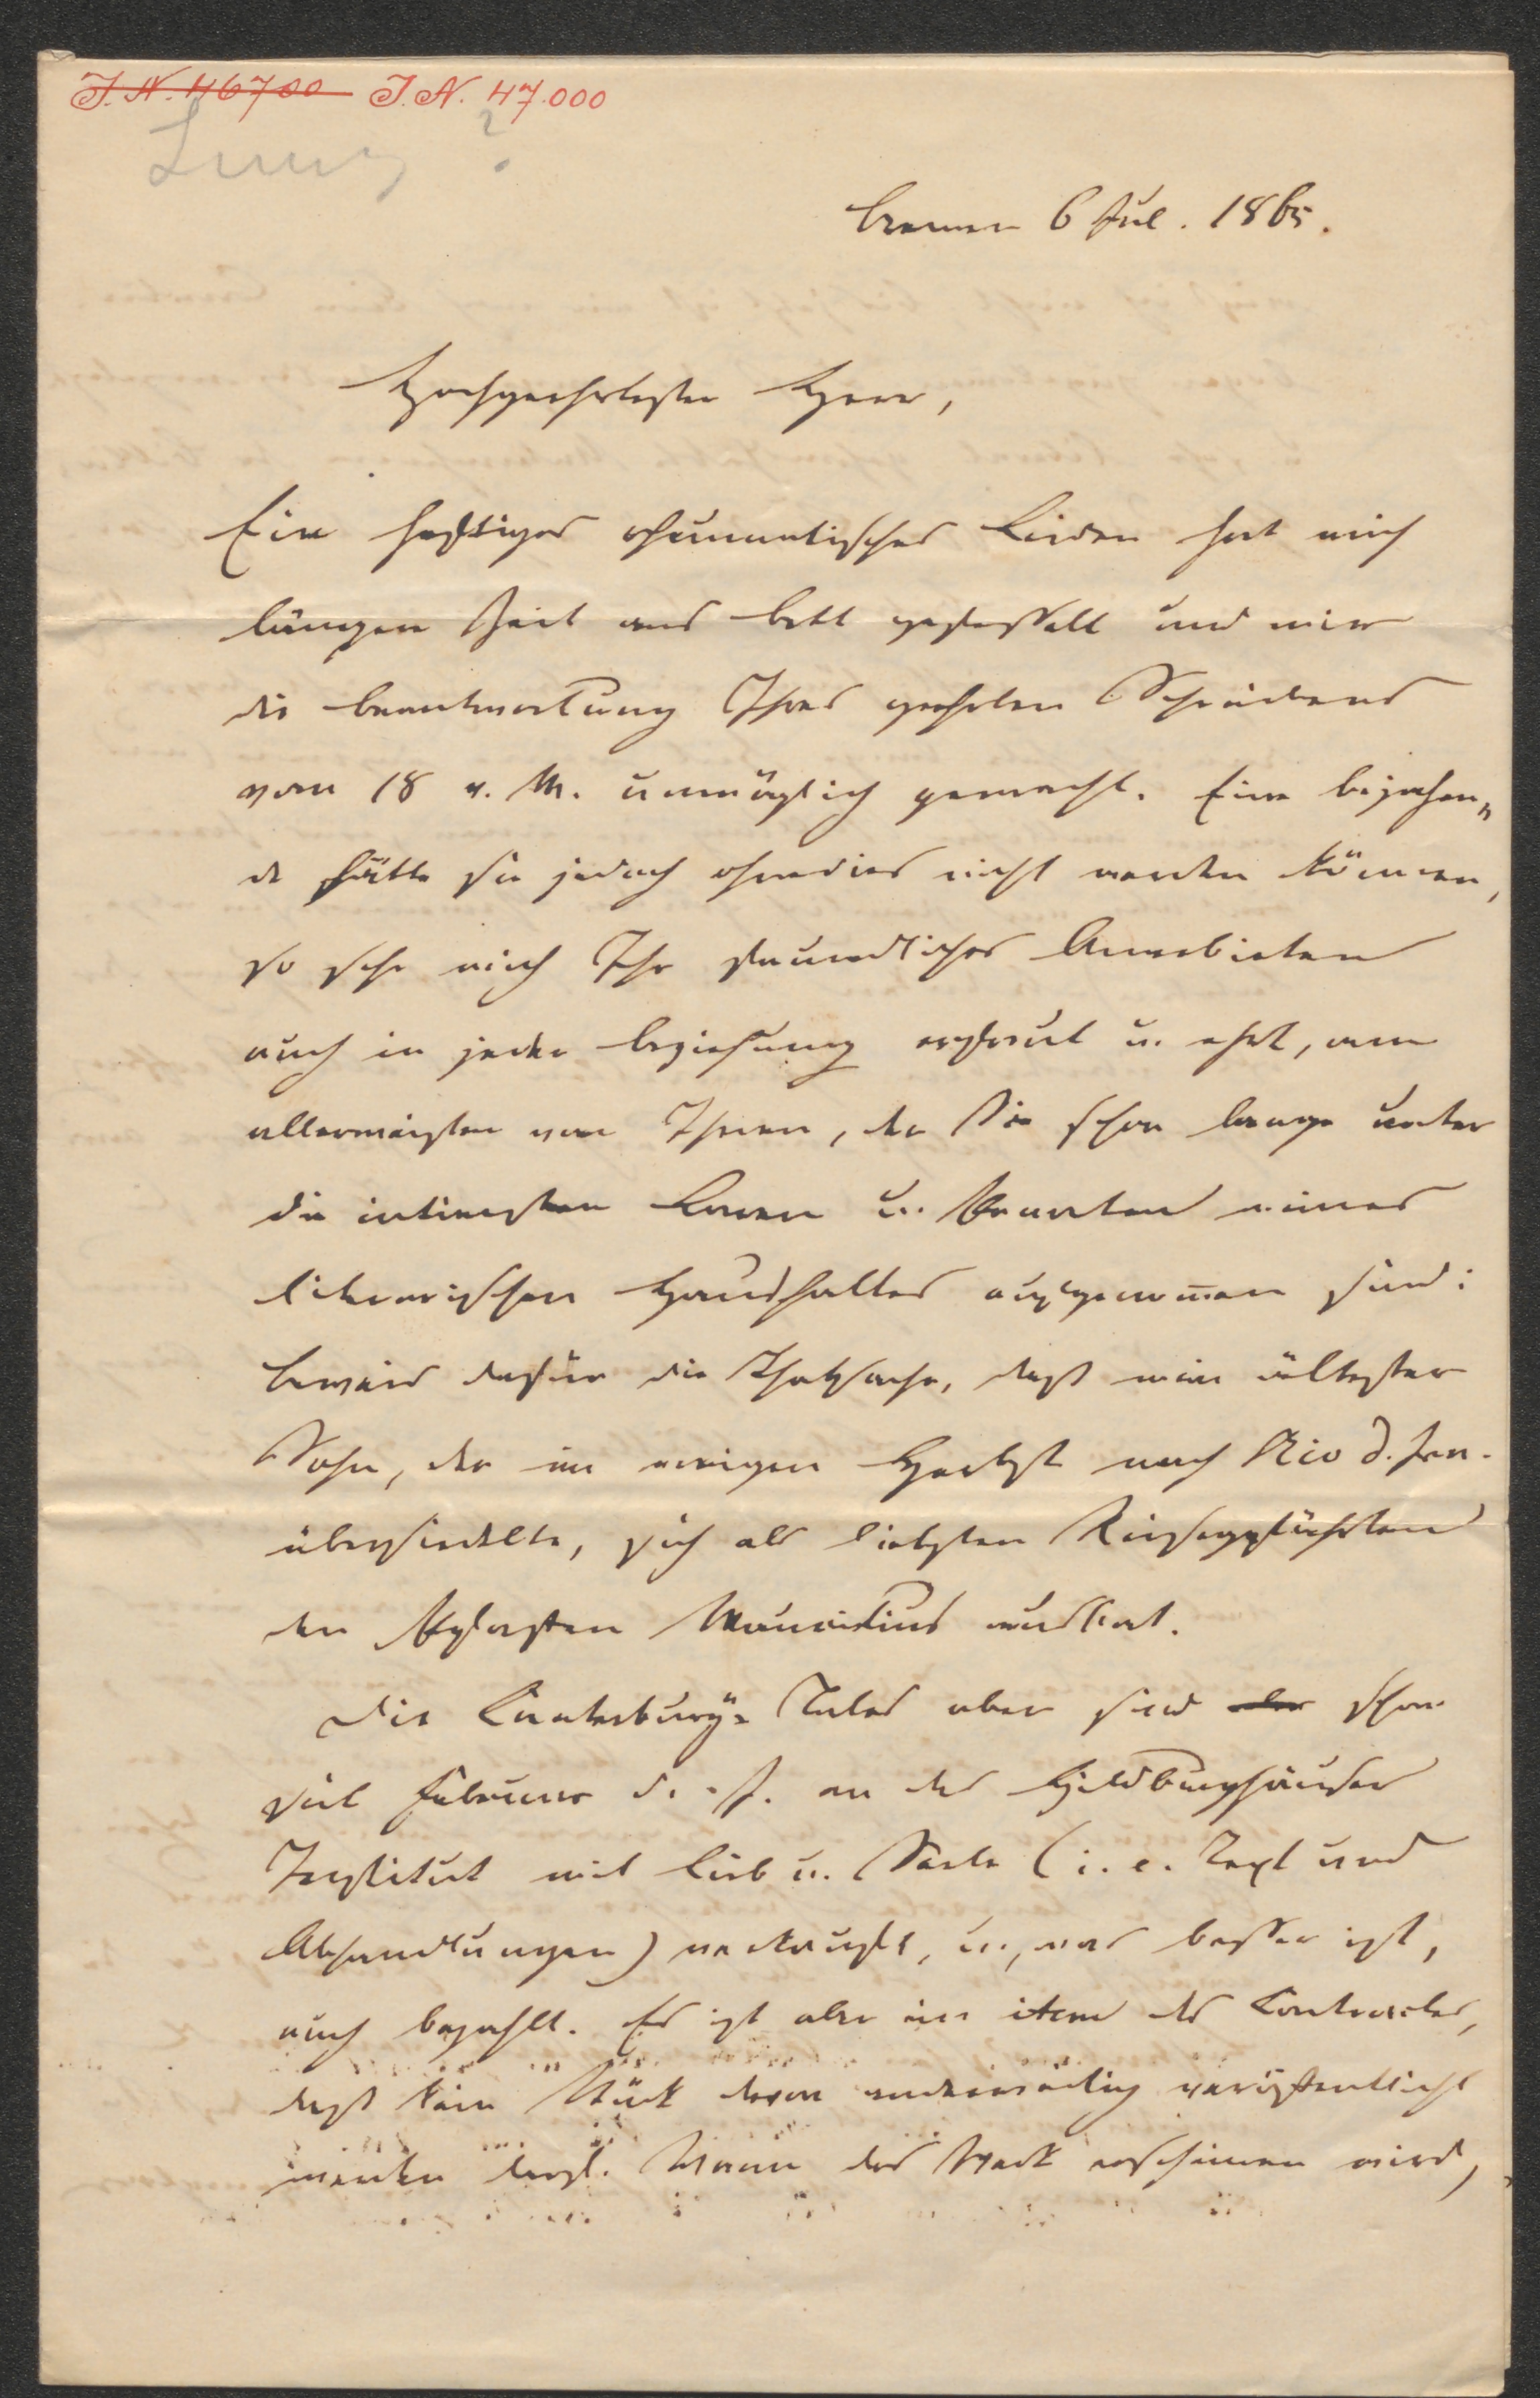 J. N. 46700 J. N. 47.000
?
Bremen 6 Jul. 1865.
Hochgeehrtester Herr,
Ein heftiges rheumatisches Leiden hat mich
längere Zeit ans Bett gefesselt und mir
die Beantwortung Ihres geehrten Schreibens
vom 18 v. M. unmöglich gemacht. Eine bejahen„
de hätte sie jedoch ohnedies nicht werden können,
so sehr mich Ihr freundliches Anerbieten
auch in jeder Beziehung erfreut u. ehrt, am
allermeisten von Ihnen, der Sie schon lange unter
die intimsten Laren u. Penaten meines
literarischen Haushaltes aufgenommen sind:
Beweis dafür die Thatsache, daß mein ältester
Sohn, der im vorigen Herbst nach Rio d. Jan.
übersiedelte, sich als liebsten Reisegefährten
den Mauritius ausbat.
Die Canterbury-Tales aber sind schon
seit Februar d. J. an das Hildburghäuser
Institut mit Leib u. Seele (i. e. Text und
Abhandlungen) verkauft, u., was besser ist,
auch bezahlt. Es ist aber ein item des Contractes,
daß kein Stück davon anderweitig veröffentlicht
werden darf. Wann das Werk erscheinen wird,